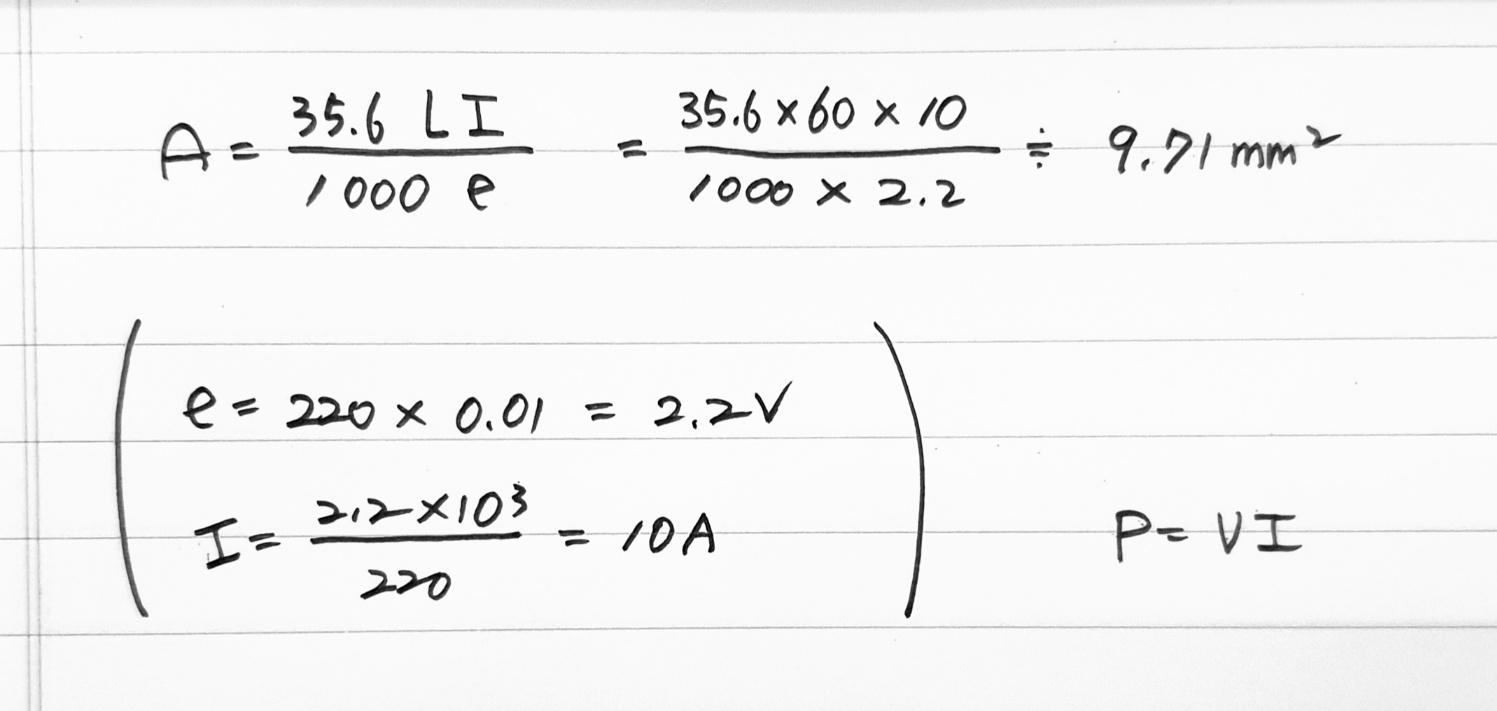 A = 35.6 LI / 1000 e = 35.6 × 60 × 10 / 1000 × 2.2 ≒ 9.71 mm²
e = 220 × 0.01 = 2.2V
I = 2.2 × 10³ / 220 = 10A
P = VI